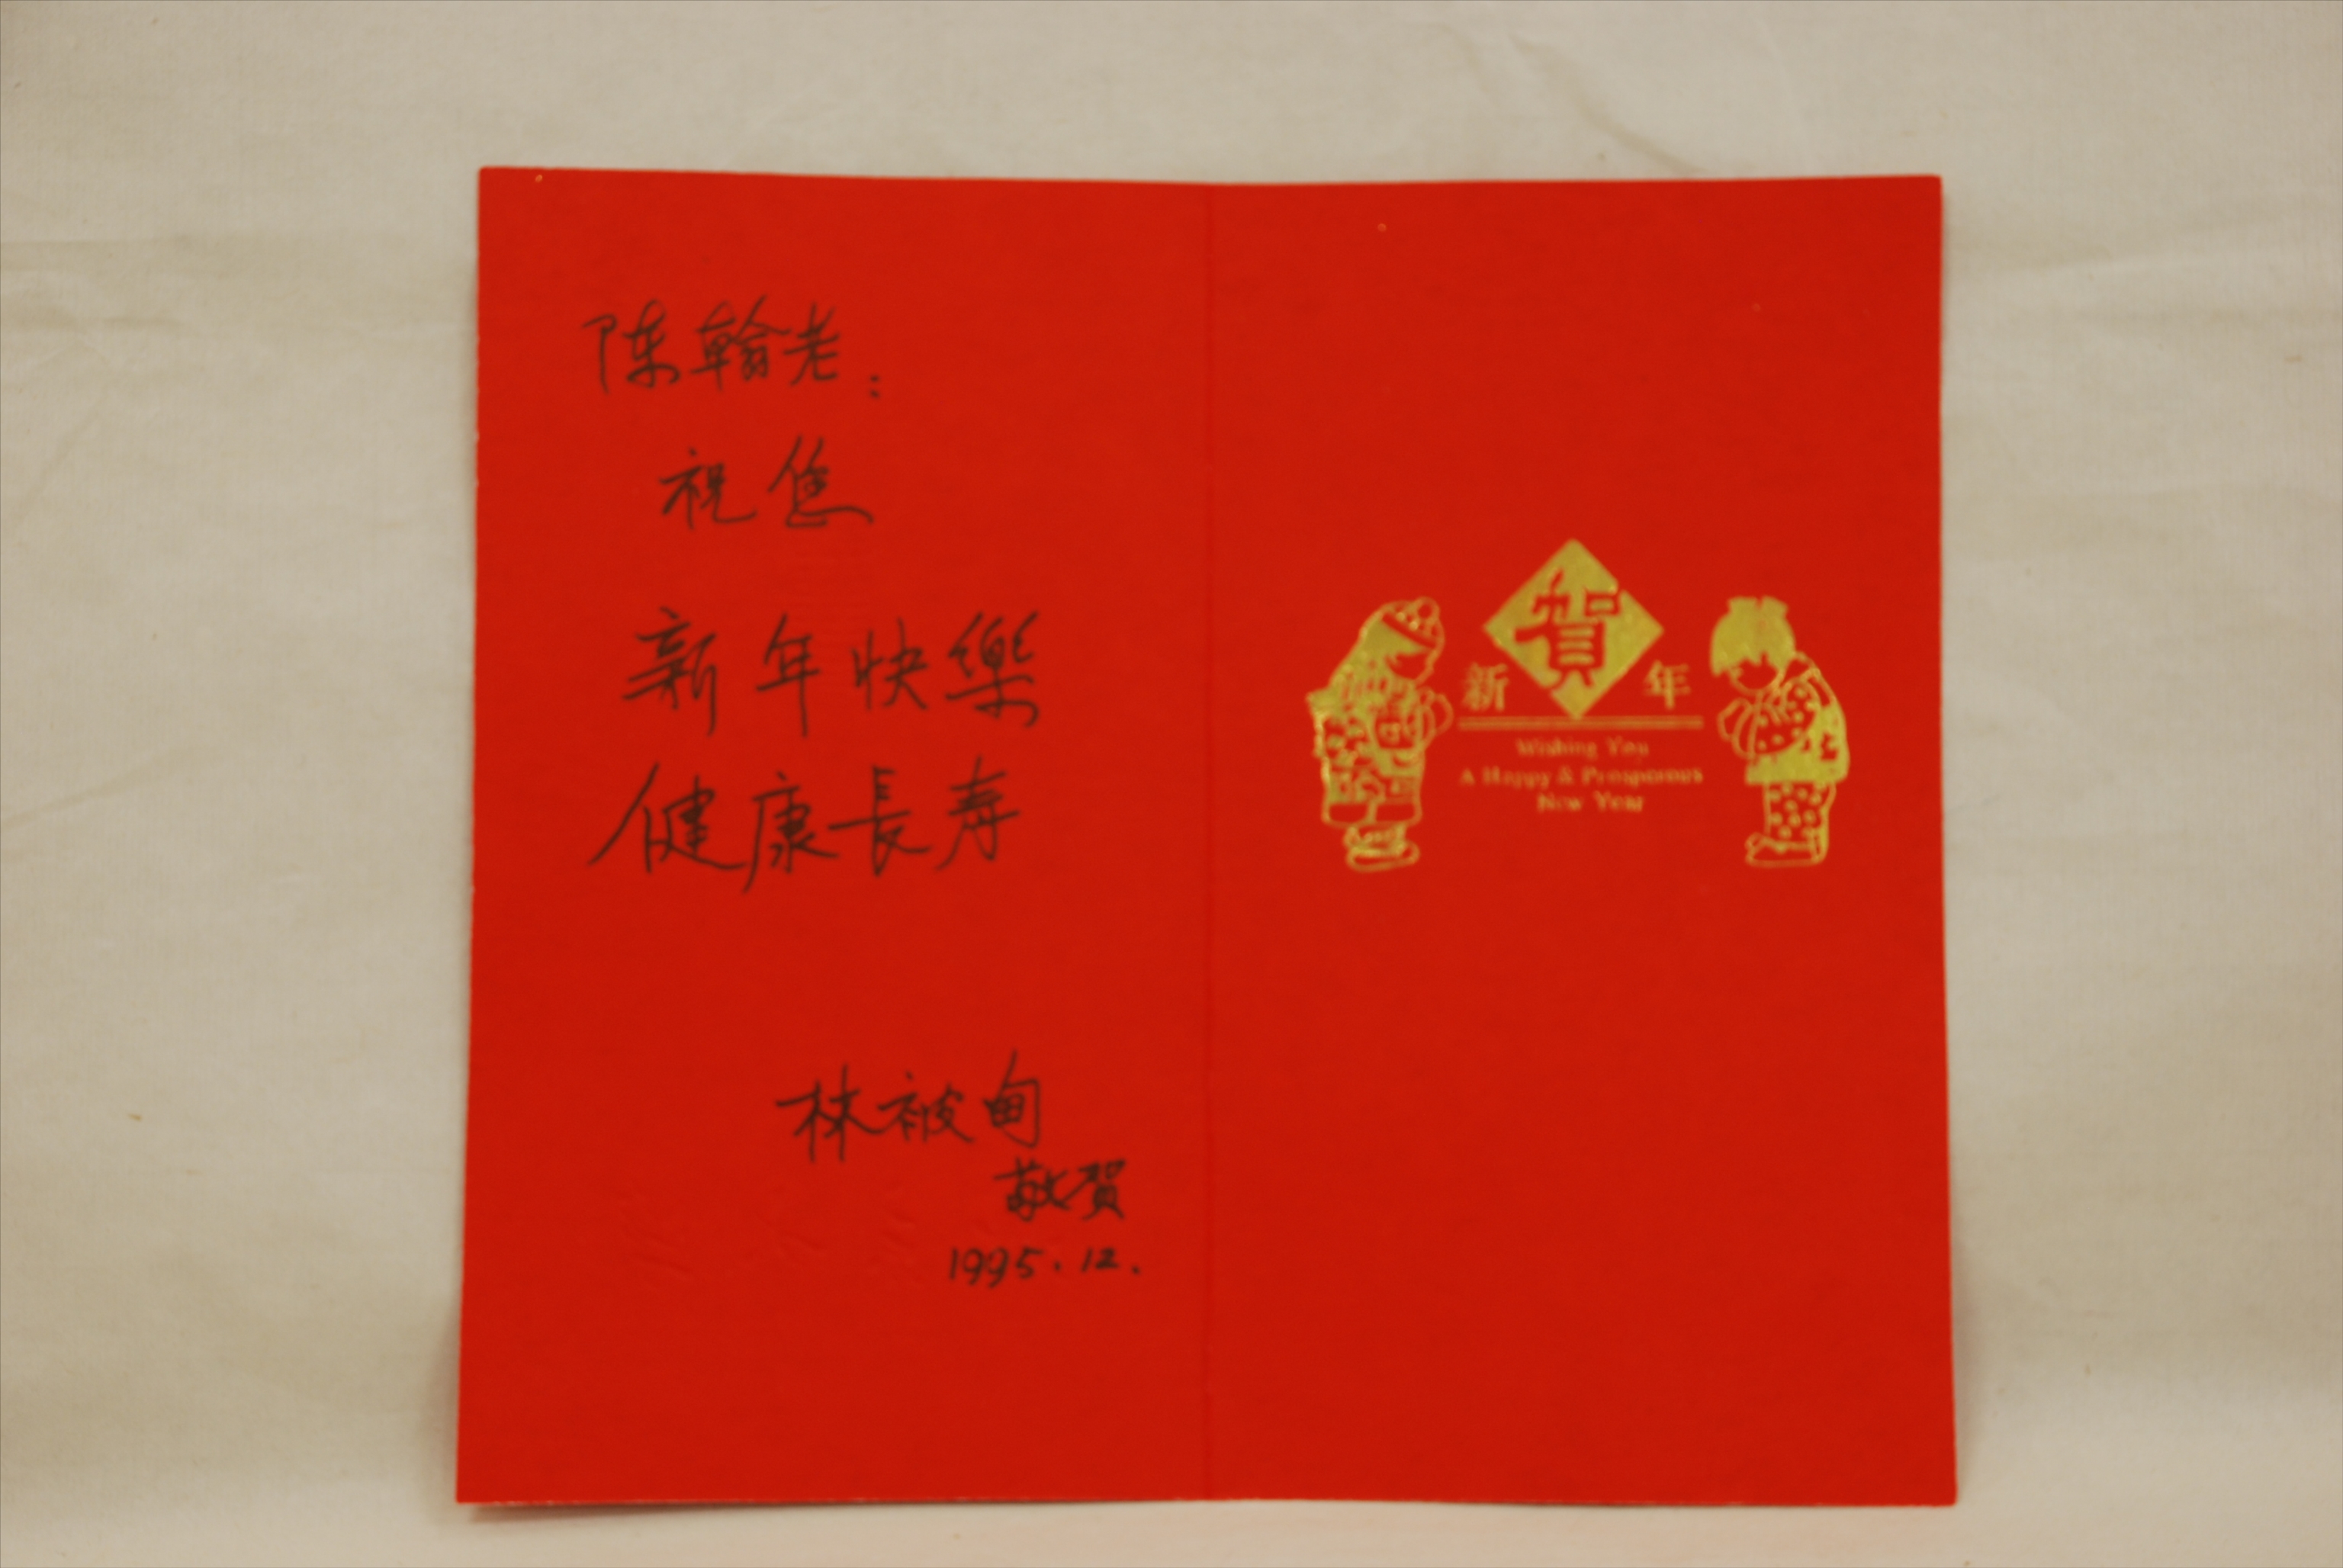 陈翰老:
祝您
新年快樂
健康長寿
林被甸
敬賀
1995.12.
賀
新 年
Wishing You
A Happy & Prosperous
New Year